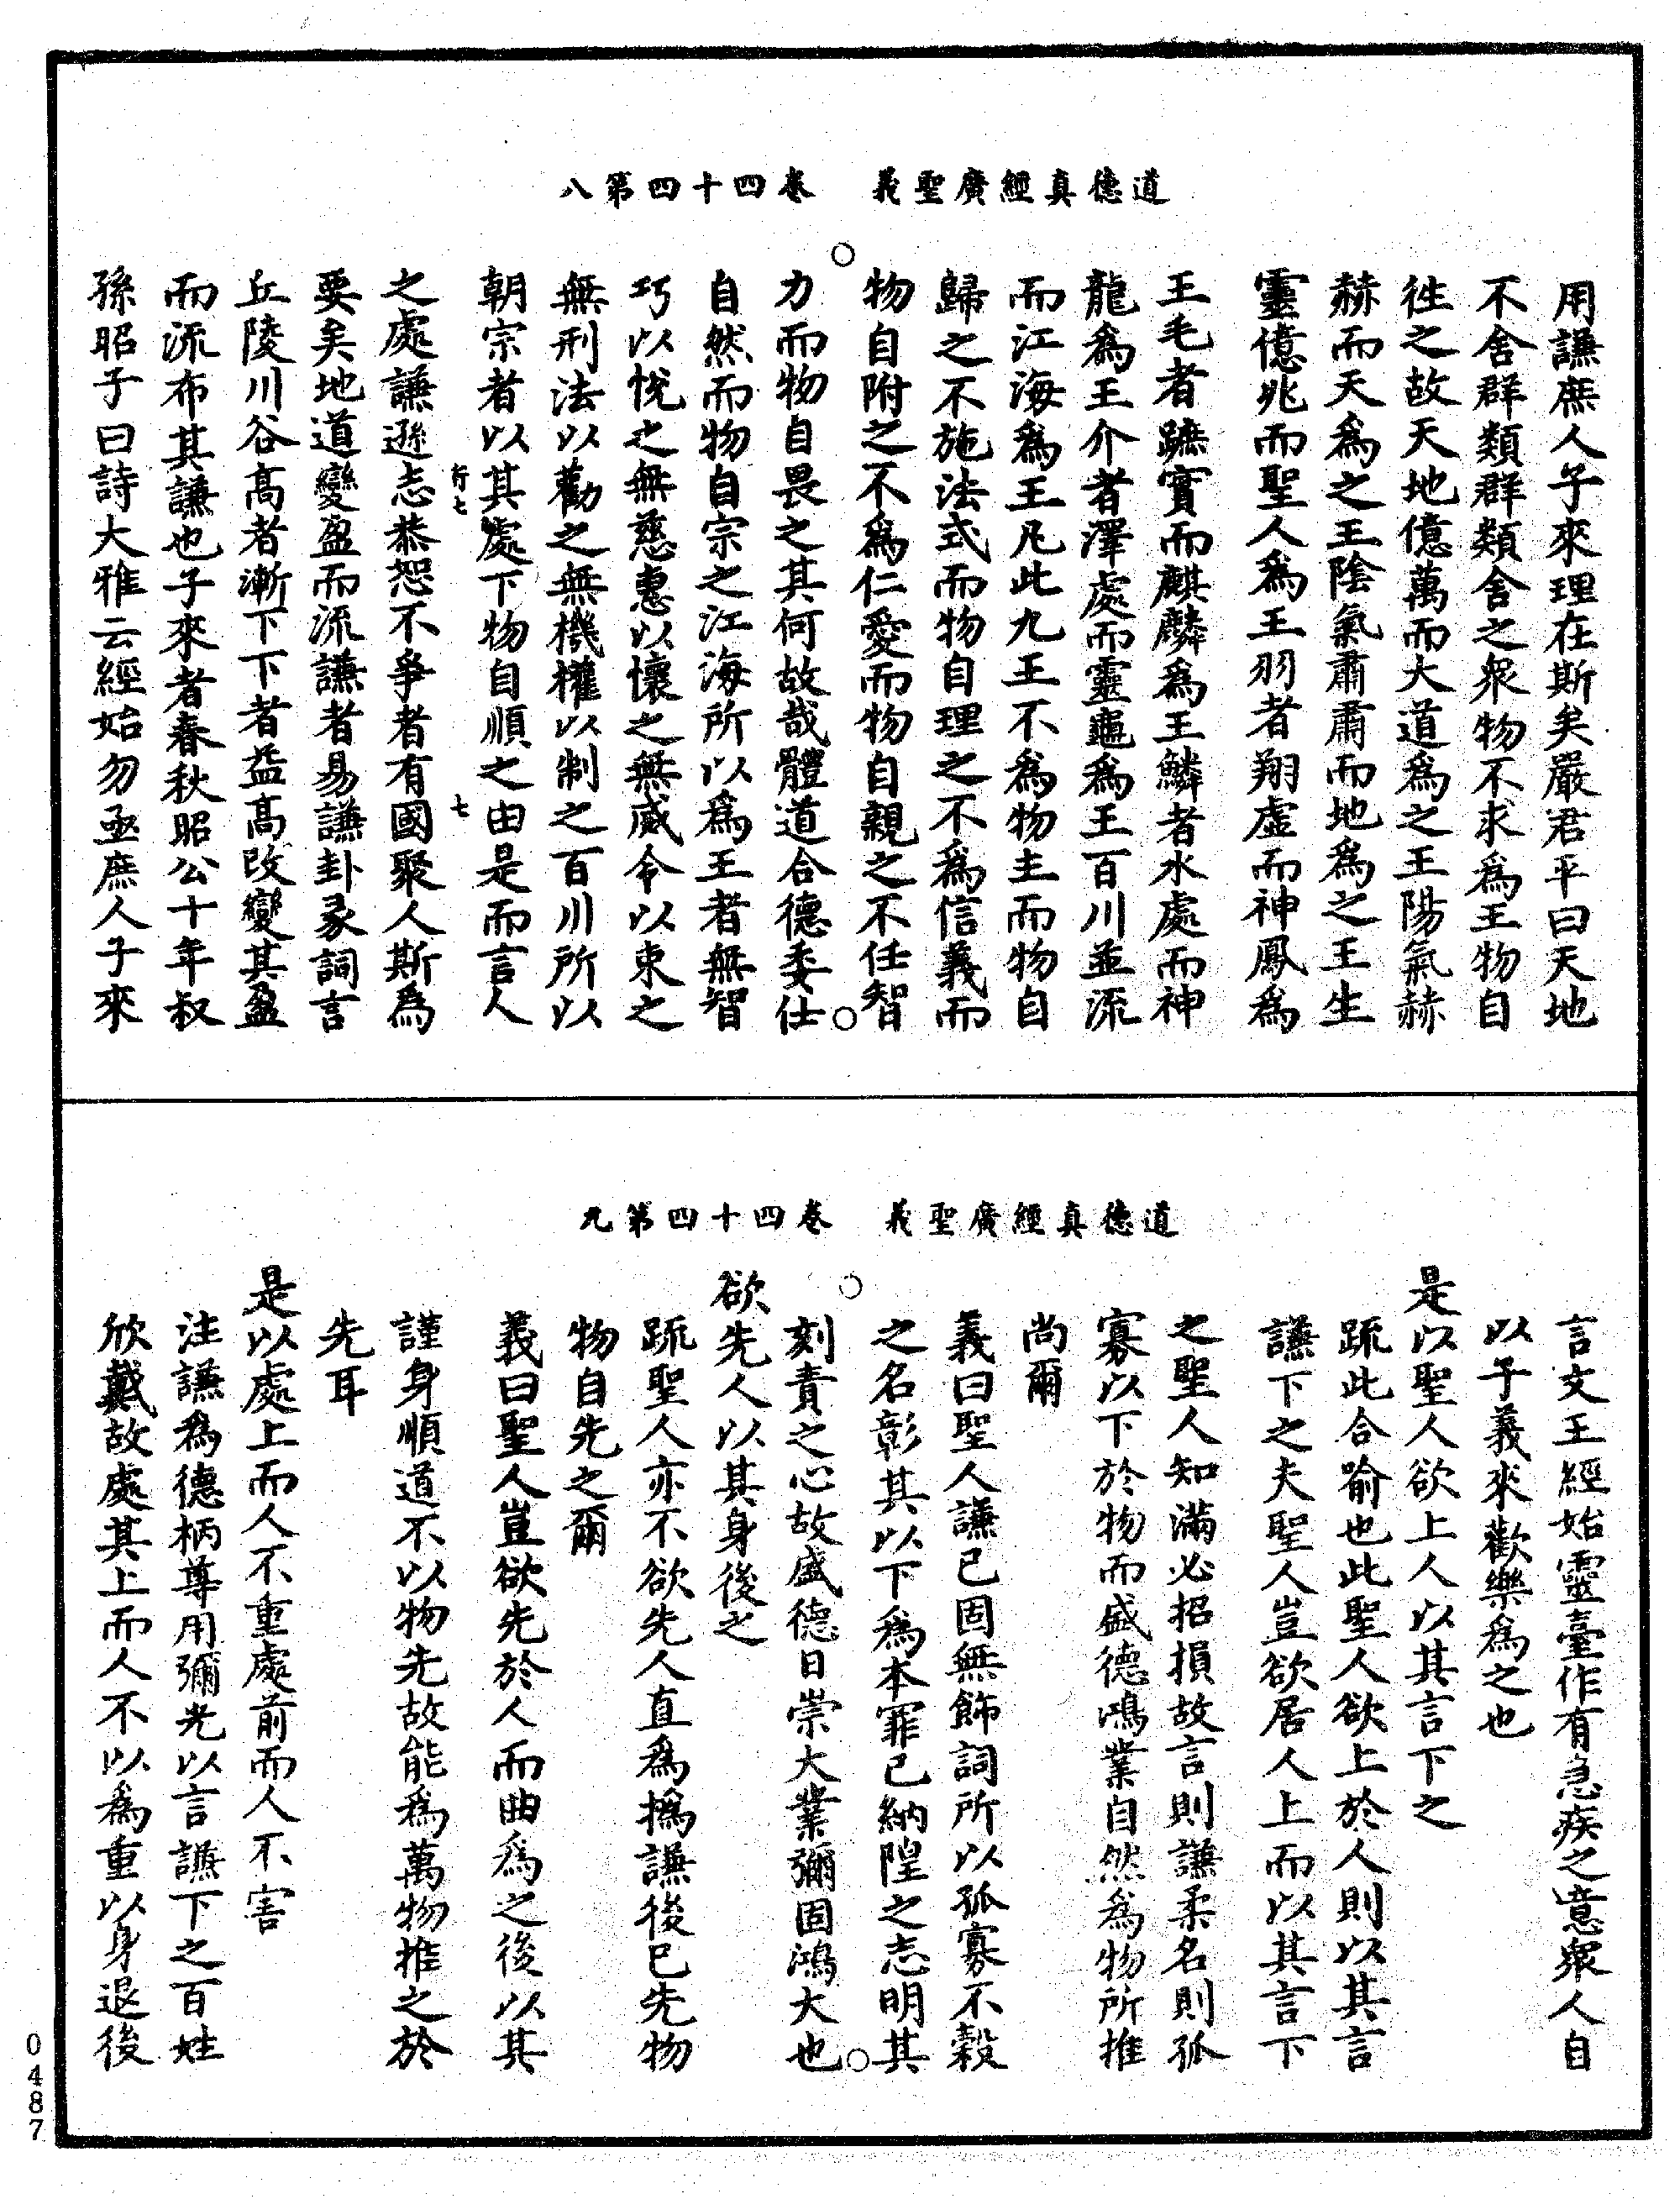 道德真經廣聖義　卷四十四第八
用謙庶人子來理在斯矣嚴君平曰天地
不舍群類群類舍之衆物不求爲王物自
徃之故天地億萬而大道爲之王陽氣赫
赫而天爲之王陰氣肅肅而地爲之王生
靈億兆而聖人爲王羽者翔虛而神鳳爲
王毛者蹠實而麒麟爲王鱗者水處而神
龍爲王介者澤處而靈龜爲王百川並流
而江海爲王凡此九王不爲物主而物自
歸之不施法式而物自理之不爲信義而
物自附之不爲仁愛而物自親之不任智
力而物自畏之其何故哉體道合德委仕
自然而物自宗之江海所以爲王者無智
巧以悅之無慈惠以懷之無威令以束之
無刑法以勸之無機權以制之百川所以
朝宗者以其處下物自順之由是而言人
之處謙遜志恭恕不爭者有國聚人斯為
要矣地道變盈而流謙者易謙卦彖詞言
丘陵川谷高者漸下下者益高改變其盈
而流布其謙也子來者春秋昭公十年叔
孫昭子曰詩大雅云經始勿亟庶人子來
道德真經廣聖義　卷四十四第九
言文王經始靈臺作有急疾之意衆人自
以子義來歡樂爲之也
是以聖人欲上人以其言下之
疏此合喻也此聖人欲上於人則以其言
謙下之夫聖人豈欲居人上而以其言下
之聖人知滿必招損故言則謙柔名則孤
寡以下於物而盛德鴻業自然爲物所推
尚爾
義曰聖人謙已固無飾詞所以孤寡不穀
之名彰其以下爲本罪已納隍之志明其
刻責之心故盛德日崇大業彌固鴻大也
欲先人以其身後之
疏聖人亦不欲先人直爲撝謙後已先物
物自先之爾
義曰聖人豈欲先於人而曲爲之後以其
謹身順道不以物先故能爲萬物推之於
先耳
是以處上而人不重處前而人不害
注謙爲德柄尊用彌光以言謙下之百姓
欣戴故處其上而人不以爲重以身退後
0487